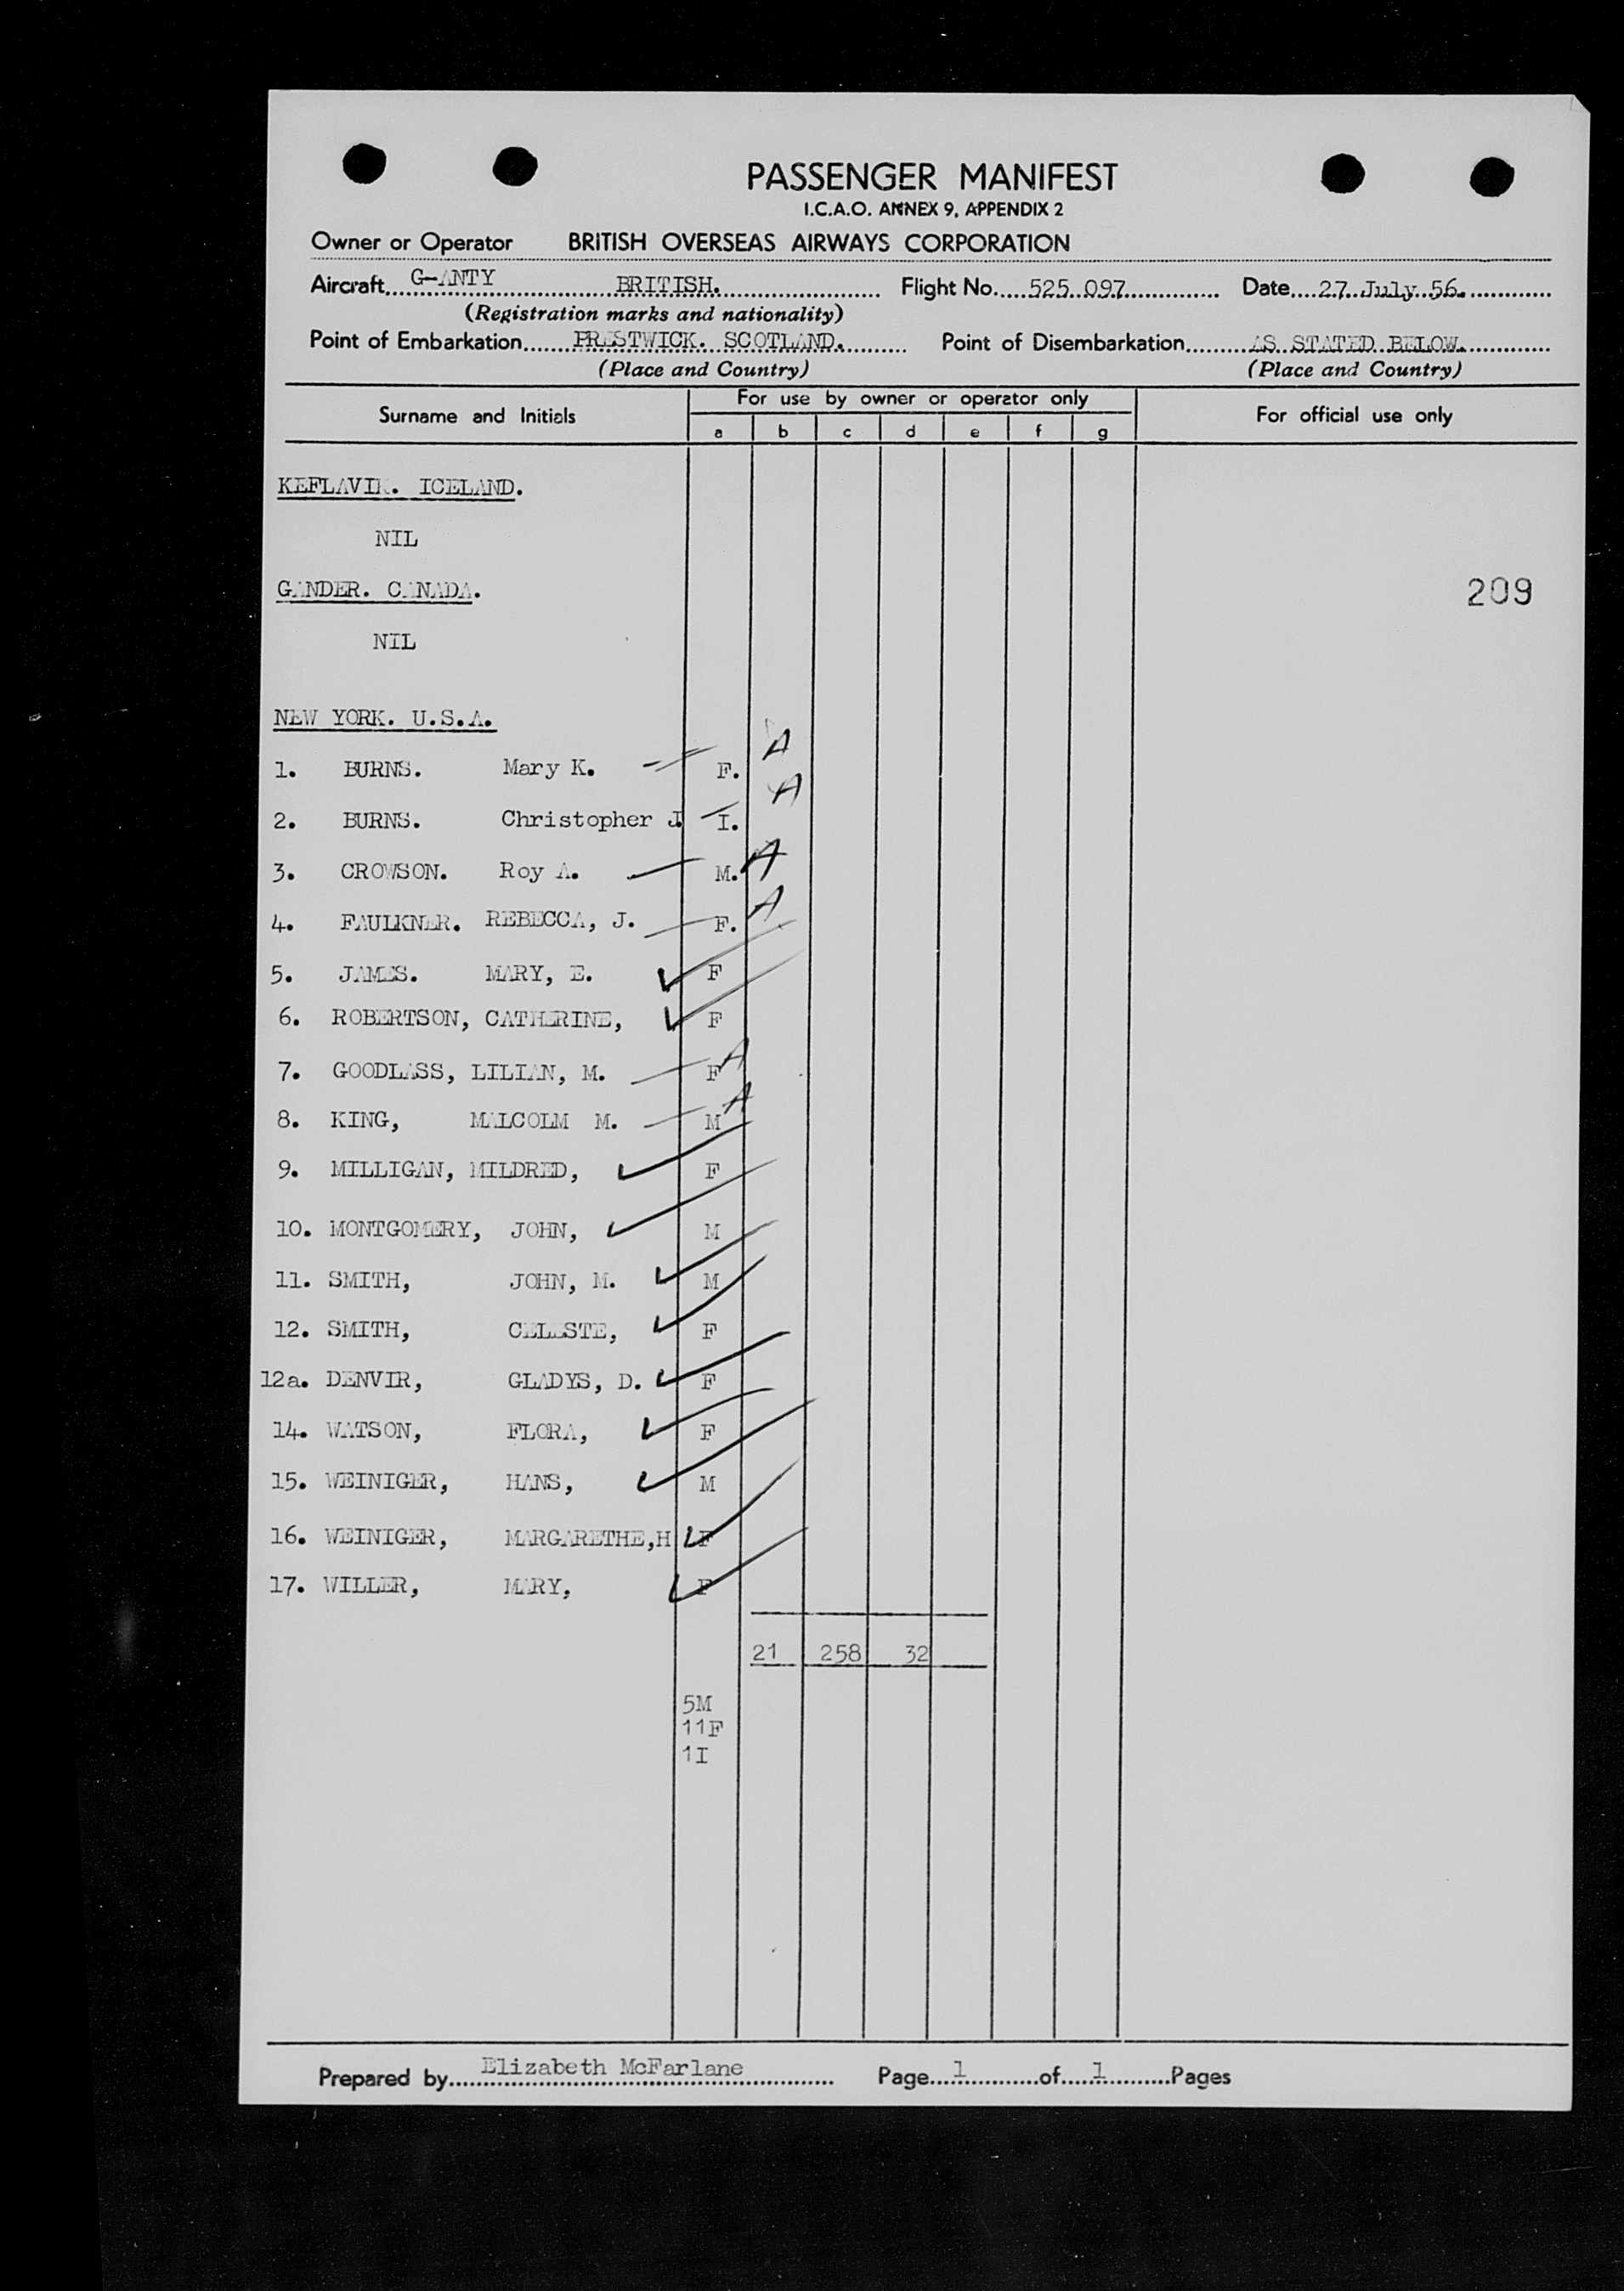 PASSENGER MANIFEST
I.C.A.O. ANNEX 9, APPENDIX 2
Owner or Operator BRITISH OVERSEAS AIRWAYS CORPORATION
Aircraft G-ANTY BRITISH. Flight No. 525 097 Date 27 July 56.
(Registration marks and nationality)
Point of Embarkation PRESTWICK. SCOTLAND. Point of Disembarkation AS STATED BELOW.
(Place and Country) (Place and Country)
Surname and Initials For use by owner or operator only For official use only
a b c d e f g
KEFLAVIK. ICELAND.
NIL
GANDER. CANADA.
209
NIL
NEW YORK. U.S.A.
1. BURNS. Mary K. F. A
2. BURNS. Christopher J. I. A
3. CROWSON. Roy A. M. A
4. FAULKNER. REBECCA, J. F. A
5. JAMES. MARY, E. F
6. ROBERTSON, CATHERINE, F
7. GOODLASS, LILIAN, M. F A
8. KING, MALCOLM M. M A
9. MILLIGAN, MILDRED, F
10. MONTGOMERY, JOHN, M
11. SMITH, JOHN, M. M
12. SMITH, CELESTE, F
12a. DENVIR, GLADYS, D. F
14. WATSON, FLORA, F
15. WEINIGER, HANS, M
16. WEINIGER, MARGARETHE,H F
17. WILLER, MARY, F
21 258 32
5M
11F
1I
Prepared by Elizabeth McFarlane Page 1 of 1 Pages